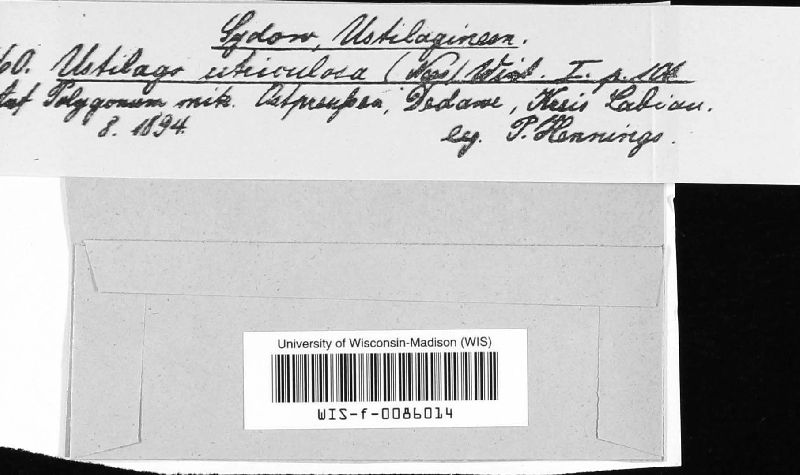 Sydow, Ustilagineen.
60. Ustilago utriculosa (Nees) Wint. I. p. 101
Auf Polygonum mite. Ostpreußen, Dedawe, Kreis Labiau.
8. 1894. leg. P. Hennings.
University of Wisconsin-Madison (WIS)
WIS-f-0086014